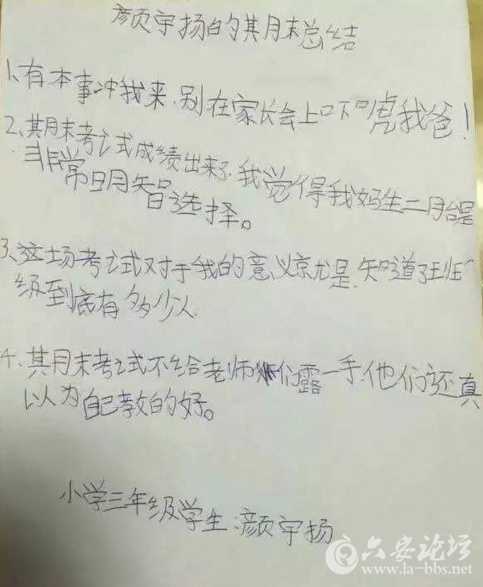 颜宇扬的期末总结
1、有本事冲我来,别在家长会上吓唬我爸!
2、期末考试成绩出来了,我觉得我妈生二胎是
非常明智选择。
3、这场考试对于我的意义就是,知道了班
级到底有多少人
4、期末考试不给老师们露一手,他们还真
以为自己教的好。
小学三年级学生:颜宇扬
六安论坛
www.la-bbs.net